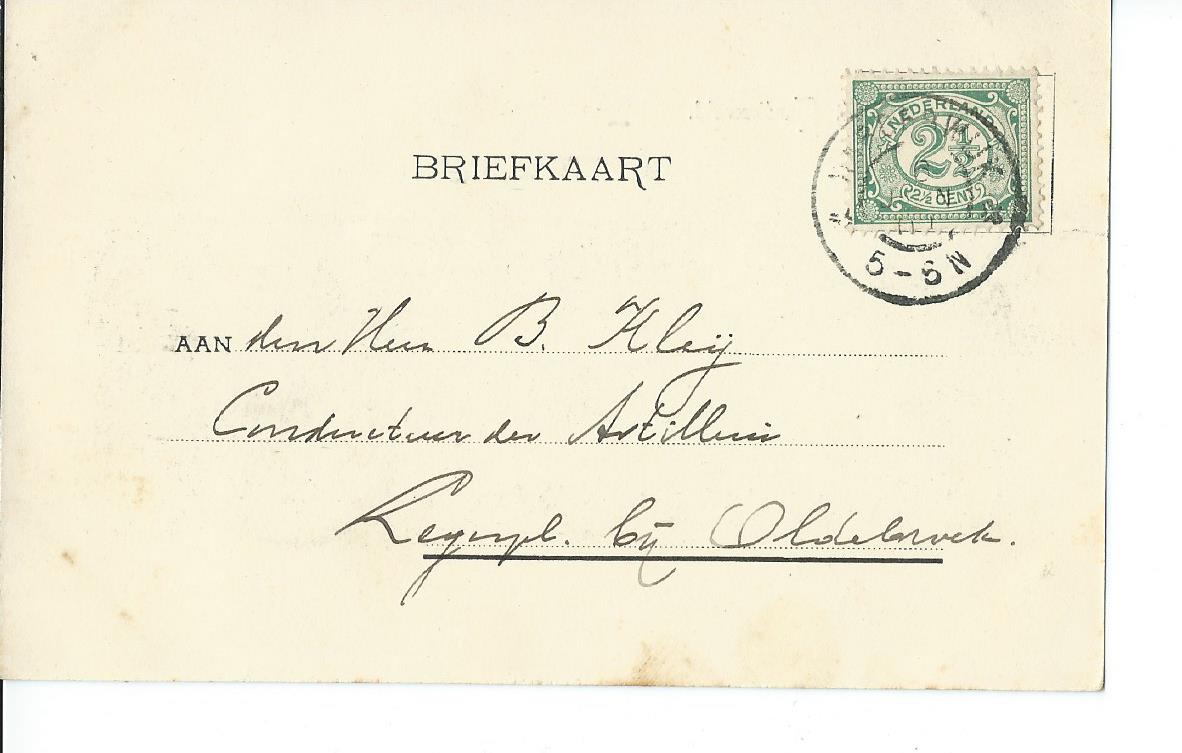 NEDERLAND
2½
2½ CENT
5-6N
BRIEFKAART
AAN den Heer B. Kleij
Conducteur der Artillerie
Legerpl. bij Oldebroek.